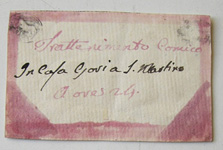 Trattenimento Comico
In Casa Giovi a S. Martino
a ores 24.